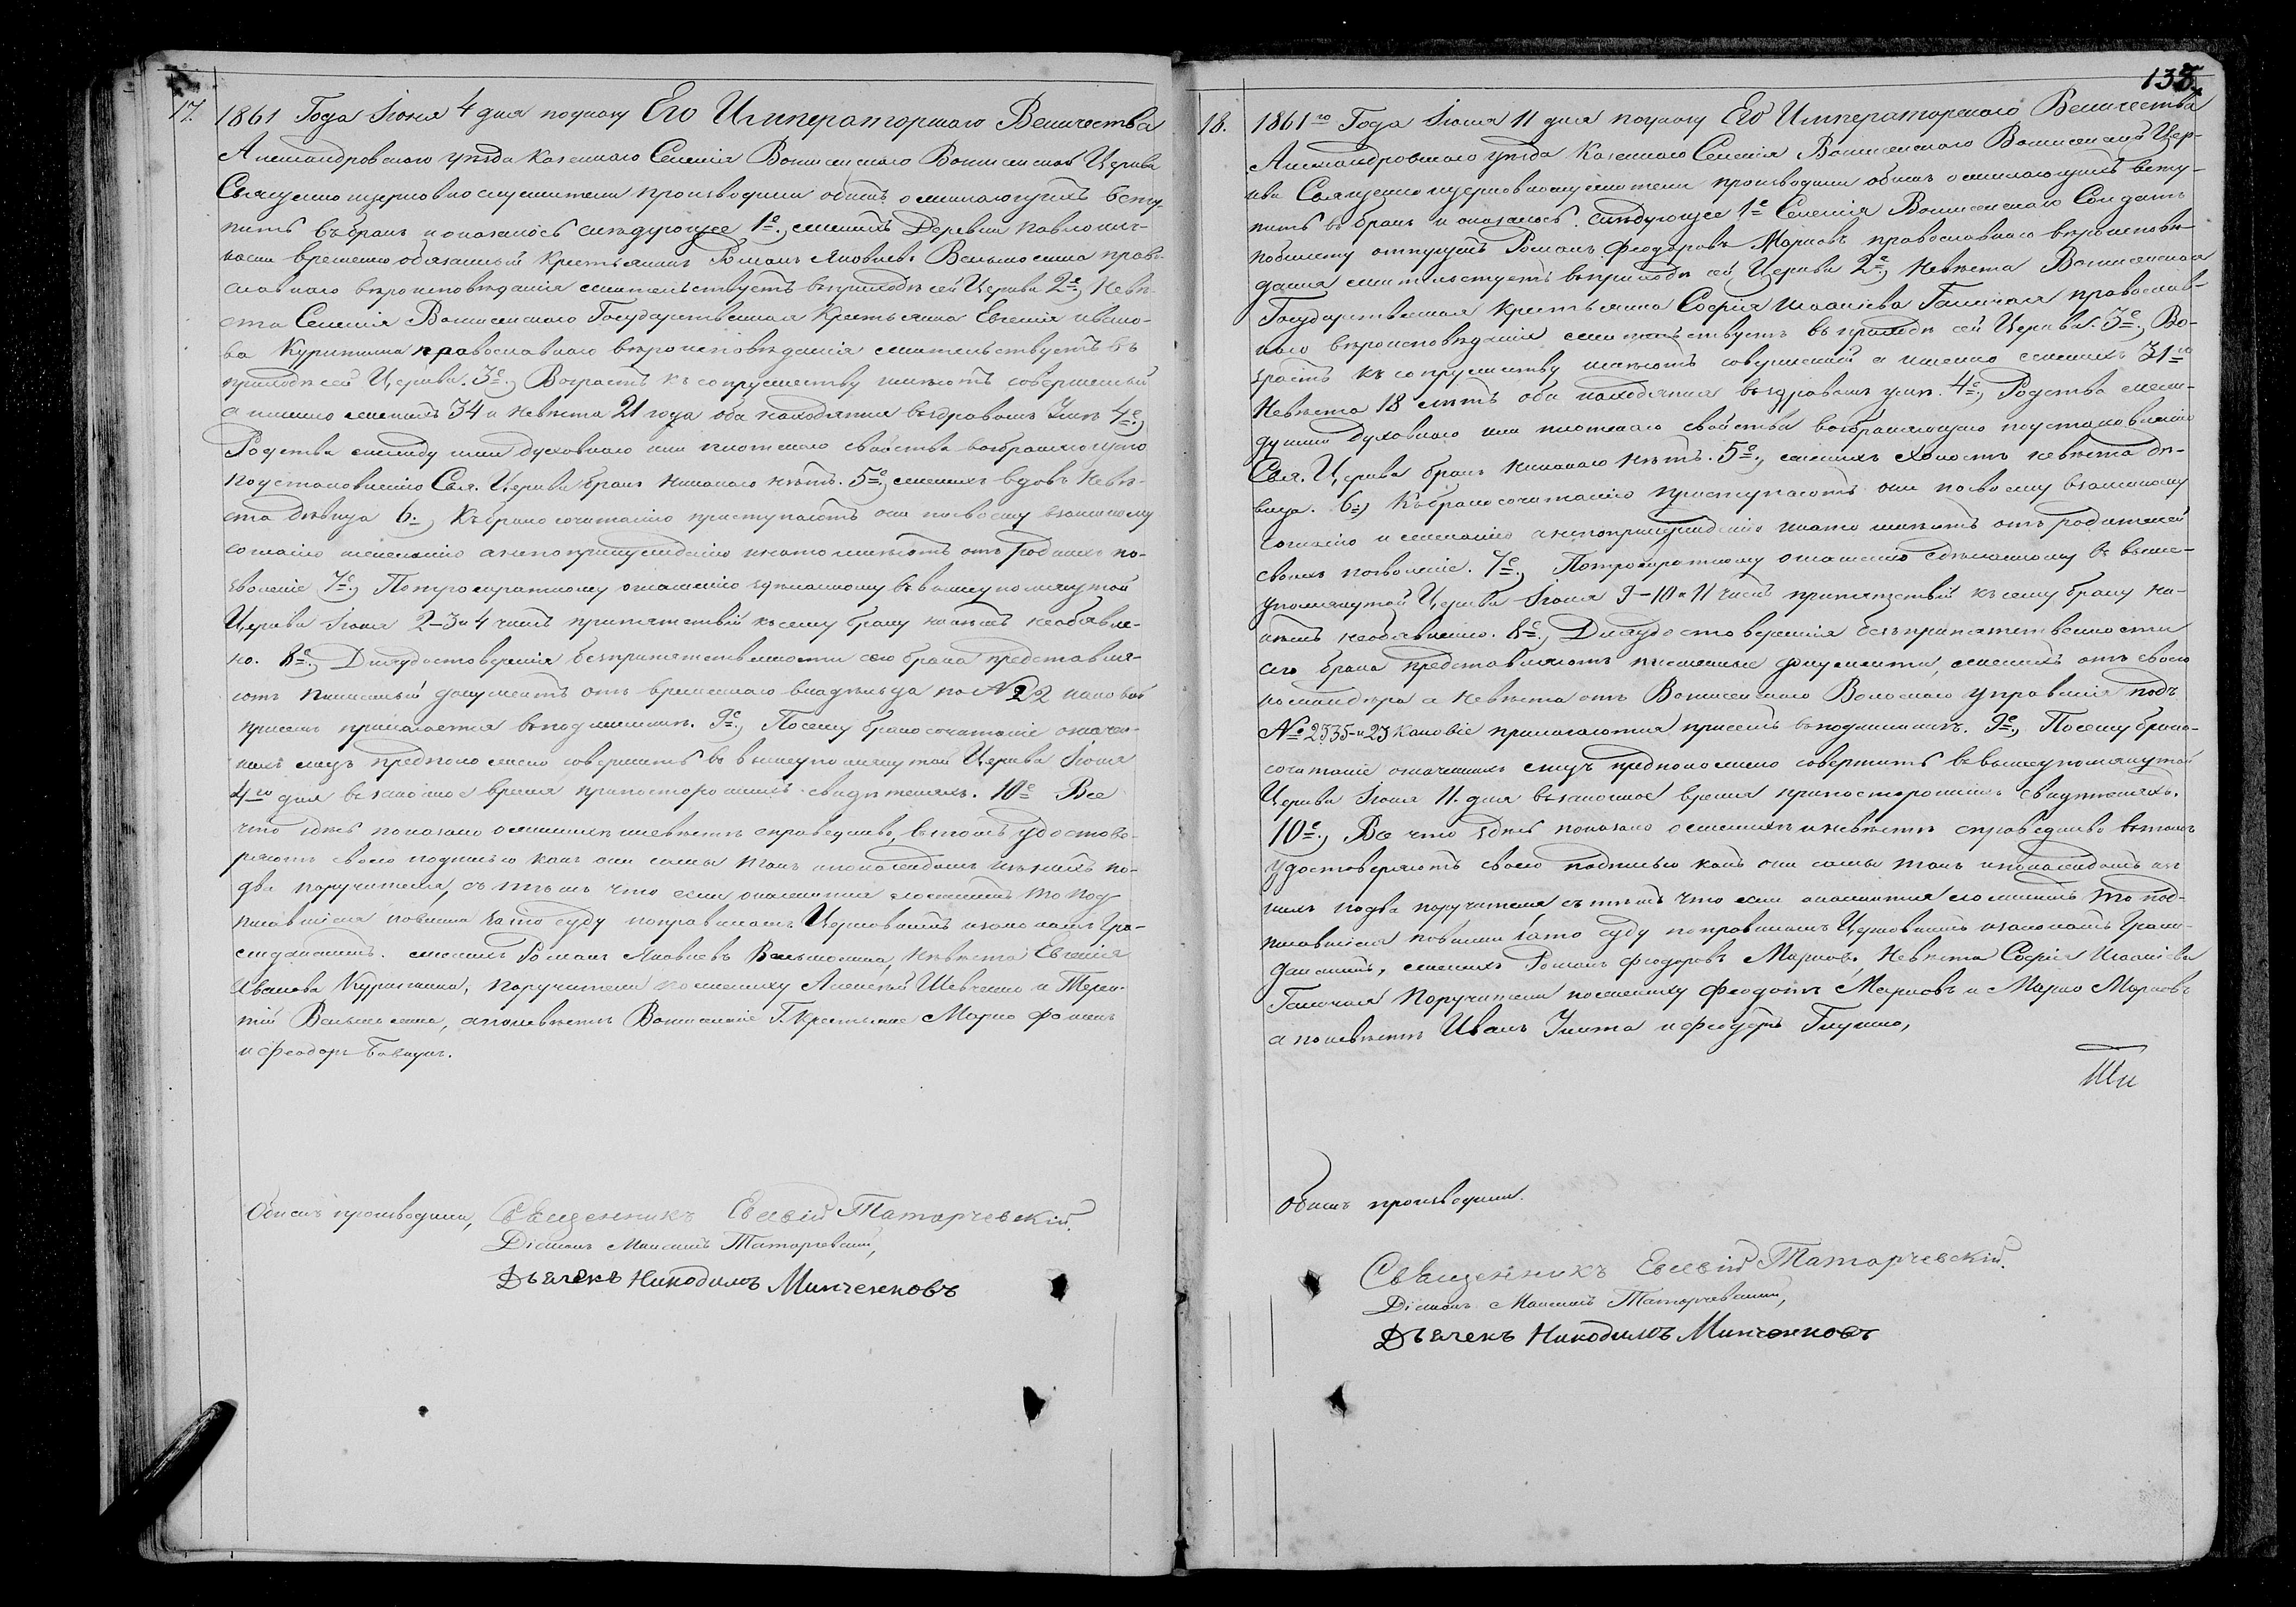 17. 1861 Года Іюня 4 дня поуказу Его Императорскаго Величества
Александровскаго уѣзда казеннаго Селенія Вознесенскаго Вознесенской Церкви
Священно церковнослужители производили обыскъ о желающихъ всту-
пить въ бракъ и оказалось слѣдующее 1е., женихъ Деревни Павло
временно обязанный Крестьянинъ Романъ Яковлевъ право-
славнаго вѣроисповѣданія жительствуетъ въ приходѣ сей Церкви 2е., Невѣ-
ста Селенія Вознесенскаго Государственная Крестьянка Евгенія ивано-
ва православнаго вѣроисповѣданія жительствуетъ въ
приходѣ сей Церкви. 3е., Возрастъ къ сопружеству имѣютъ совершенный
а именно женихъ 34 и невѣста 21 года оба находятся въ здравомъ Умѣ 4е.,
Родства между ими духовнаго или плотскаго свойства возбраняющаго
по установленію Свя. Церкви бракъ никакого нѣтъ. 5е., женихъ вдовъ Невѣ-
ста дѣвица 6., Къ бракосочетанію приступаютъ они по своему взаимному
согласію и желанію а не по принужденію и на то имѣютъ отъ родныхъ по-
зволеніе 7е., По троекратному оглашенію здѣланному въ вышеупомянутой
Церкви Іюня 2-3 и 4 числъ препятствій къ сему браку никѣмъ не обявле-
но. 8е., Для удостовѣренія безпрепятственности сего брака представля-
ютъ письменный документъ отъ временнаго владѣльца по № 22 каковой
присемъ прилагается въ подлинникѣ. 9е., Посему бракосочетаніе означен-
ныхъ лицъ предположено совершить въ вышеупомянутой Церкви Іюня
4го дня въ законное время при постороннихъ свидѣтеляхъ. 10е Все
что здѣсь показано о женихѣ и невѣстѣ справедливо, въ томъ удостовѣ-
ряютъ своею подписью какъ они сами такъ и по каждомъ изъ нихъ по-
два поручителя, съ тѣмъ что если окажется ложнымъ то под-
писавшіеся повинны зато суду по правиламъ Церковнымъ и законамъ Гра-
жданскимъ. женихъ Романъ Яковлевъ невѣста Евгенія
Иванова поручители по жениху Алексѣй Шевченко и Терен-
тій а по невѣстѣ Вознесенскіе Г. Крестьяне Марко Фоминъ
и Феодоръ

Обыскъ производили, Священникъ Евсевій Татарчевскій.
Діаконъ Максимъ Татарчевскій,
Дьячекъ Никодимъ Минченковъ

138.
18. 1861го Года Іюня 11 дня поуказу Его Императорскаго Величества
Александровскаго уѣзда казеннаго Селенія Вознесенскаго Вознесенской Цер-
кви Священно церковнослужители производили обыскъ о желающихъ всту-
пить въ бракъ и оказалось слѣдующее 1е Селенія Вознесенскаго Солдатъ
побилету отпускной Романъ Феодоровъ Марковъ православнаго вѣроисповѣ-
данія жительствуетъ въ приходѣ сей Церкви 2е., Невѣста Вознесенская
Государственная Крестьянка Софія православ-
наго вѣроисповѣданія жительствуетъ въ приходѣ сей Церкви. 3е., Во-
зрастъ къ сопружеству имѣютъ совершенный а именно женихъ 31го
Невѣста 18 лѣтъ оба находятся въ здравомъ умѣ. 4е., Родства меж-
ду ими духовнаго или плотскаго свойства возбраняющаго по установленію
Свя. Церкви бракъ никакого нѣтъ. 5е., женихъ холостъ невѣста дѣ-
вица. 6е., Къ бракосочетанію приступаютъ они по своему взаимному
согласію и желанію а не по принужденію и на то имѣютъ отъ родителей
своихъ позволеніе. 7е., По троекратному оглашенію сдѣланному въ выше-
упомянутой Церкви Іюня 9-10 и 11 числъ препятствій къ сему браку ни-
кѣмъ не обявлено. 8е., Для удостовѣренія безпрепятственности
сего брака представляютъ письменные документы, женихъ отъ своего
командира а невѣста отъ Вознесенскаго Волоснаго управленія подъ
№ 2535-и 23 каковіе прилагаются присемъ въ подлинникѣ. 9е., Посему брако-
сочетаніе означенныхъ лицъ предположено совершить въ вышеупомянутой
Церкви Іюня 11. дня въ законное время при постороннихъ свидѣтеляхъ.
10е., Все что здѣсь показано о женихѣ и невѣстѣ справедливо въ томъ
удостовѣряютъ своею подписью какъ они сами такъ и по каждомъ изъ
нихъ по два поручителя съ тѣмъ что если окажется ложнымъ то под-
писавшіеся повинны зато суду по правиламъ Церковнымъ и законамъ Граж-
данскимъ, женихъ Романъ Феодоровъ Марковъ, Невѣста Софія
Поручители по жениху Феодотъ Марковъ и Марко Марковъ
а по невѣстѣ Иванъ и Феодоръ Глушко,

Обыскъ производили.
Священникъ Евсевій Татарчевскій.
Діаконъ Максимъ Татарчевскій,
Дьячекъ Никодимъ Минченковъ